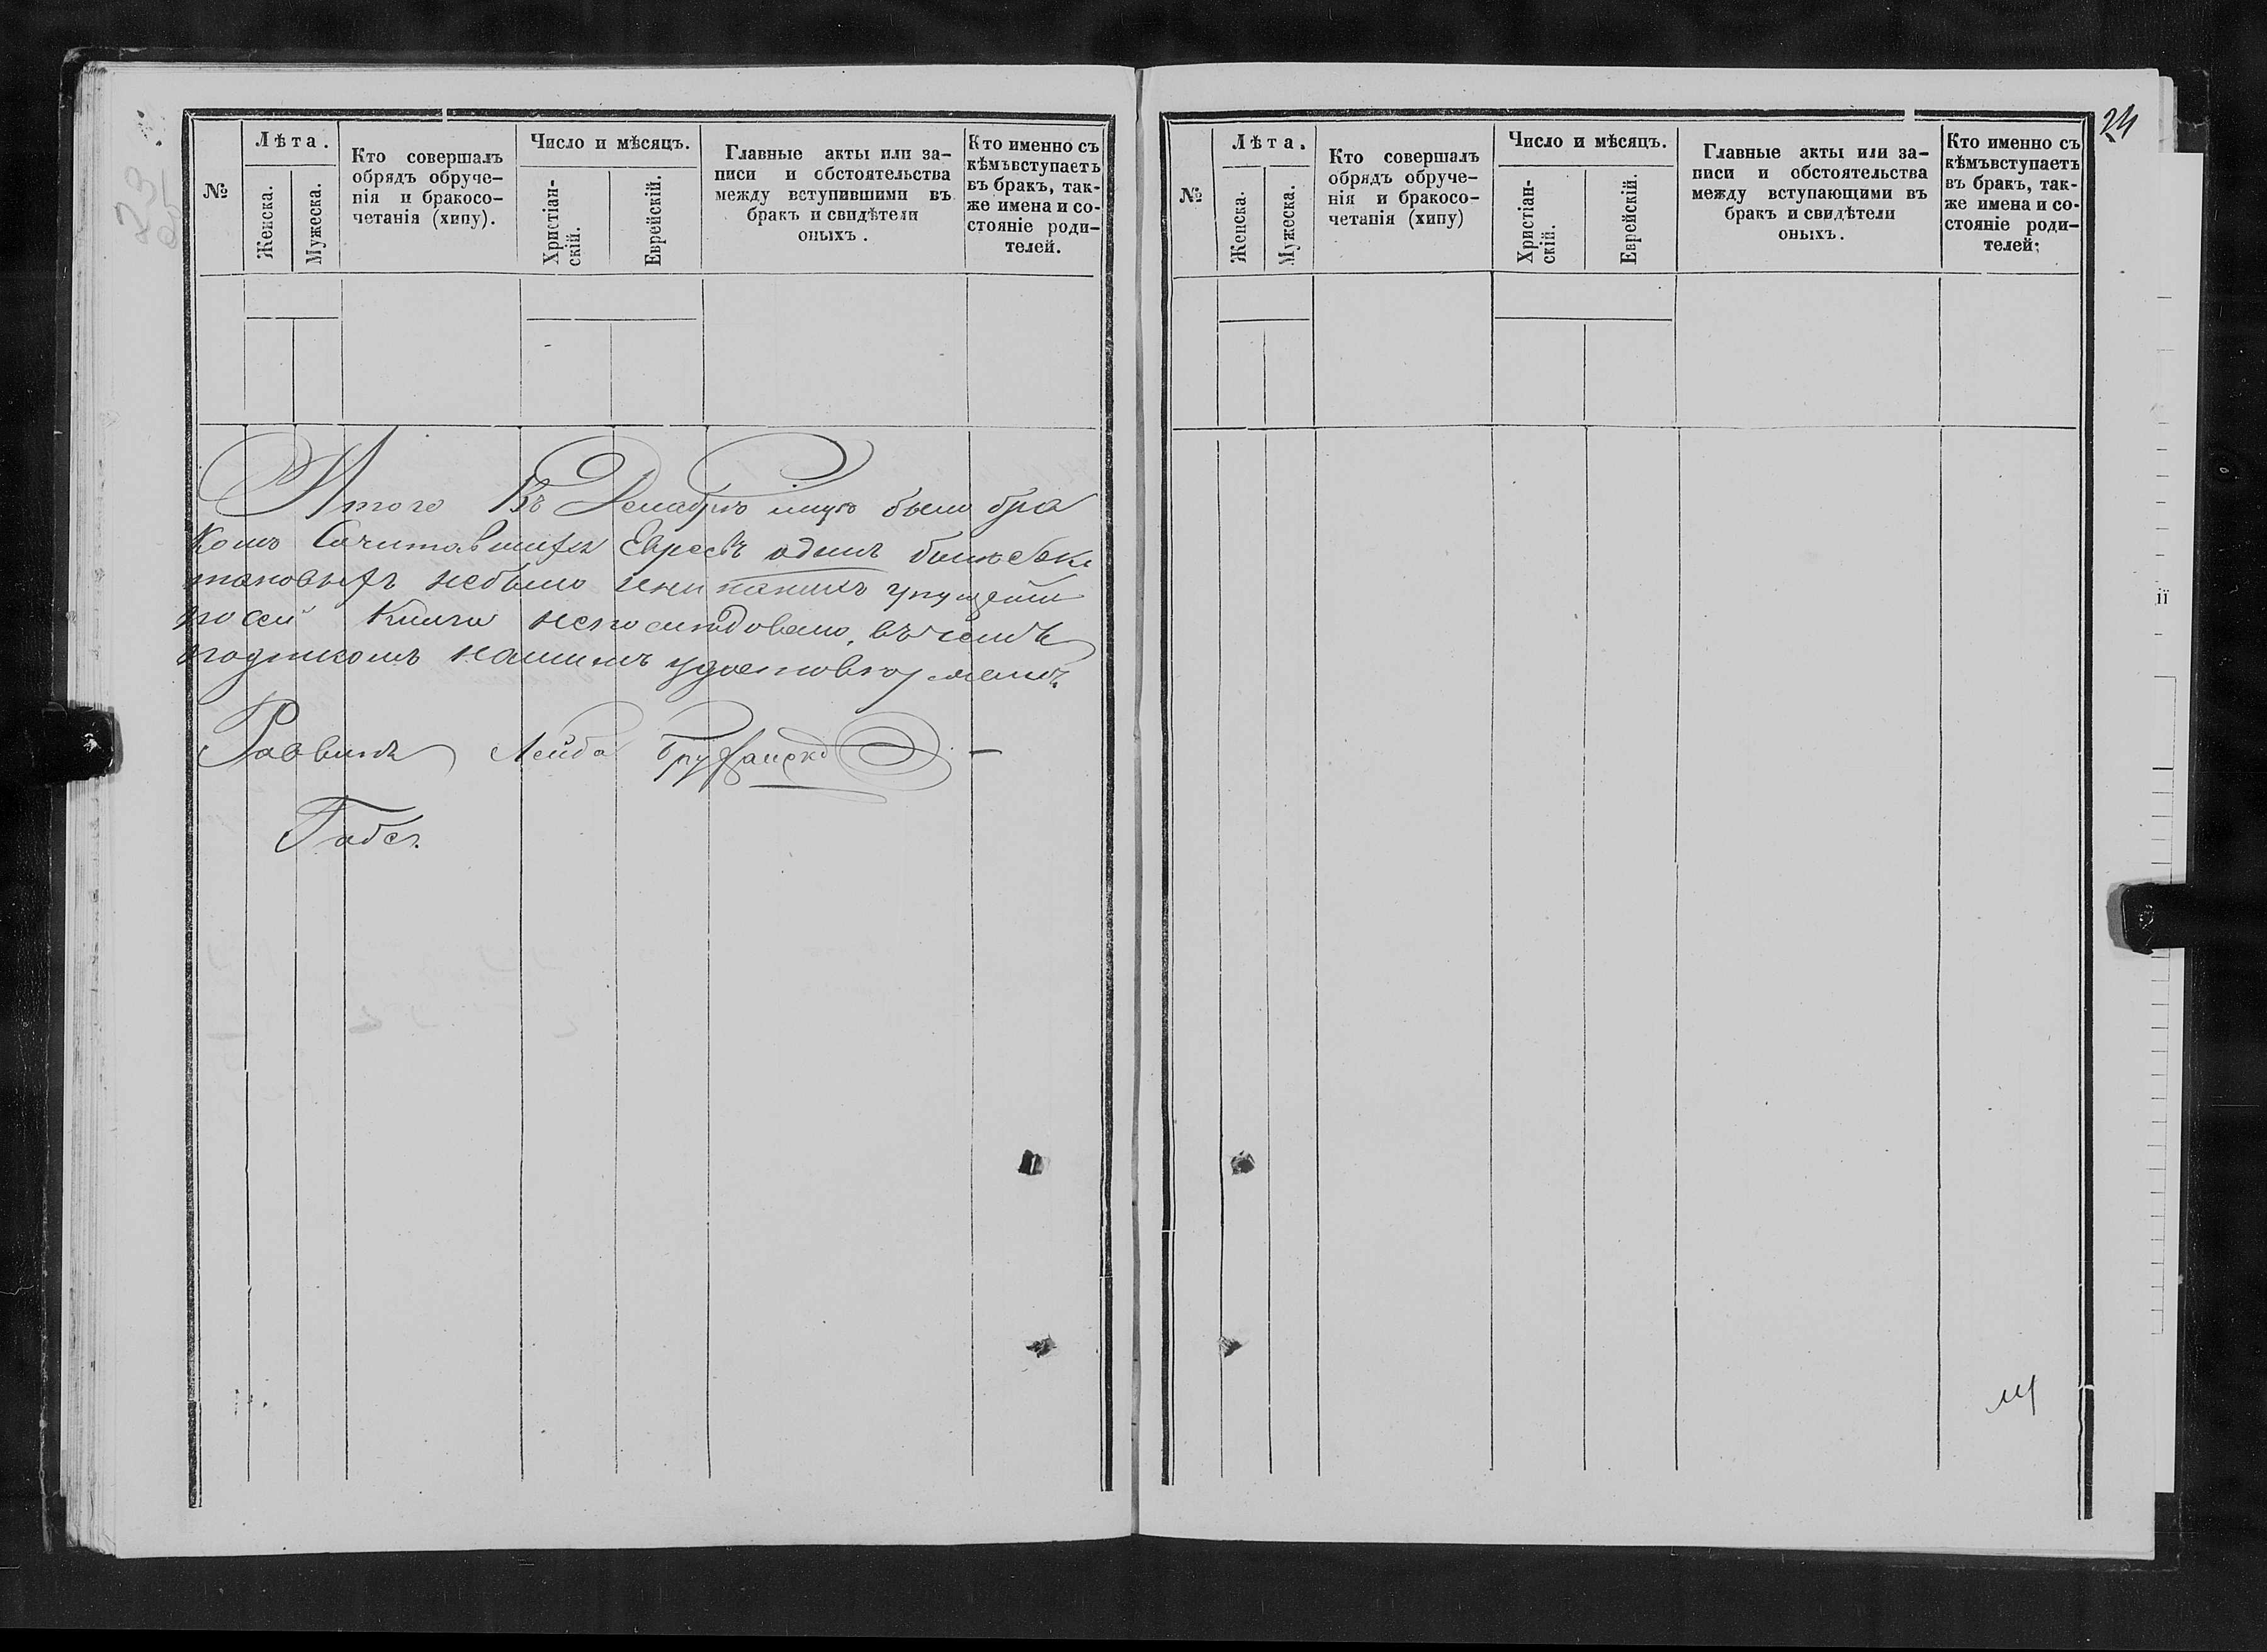 23
об
№
Лѣта.
Женска.
Мужеска.
Кто совершалъ
обрядъ обруче-
нія и бракосо-
четанія (хипу).
Число и мѣсяцъ.
Христіан-
скій.
Еврейскій.
Главные акты или за-
писи и обстоятельства
между вступившими въ
бракъ и свидѣтели
оныхъ.
Кто именно съ
кѣмъ вступаетъ
въ бракъ, так-
же имена и со-
стояніе роди-
телей.
Итого Въ Декабрѣ было бра
комъ Сочитавшихся Евреевъ одинъ
таковыхъ небыло никакихъ упущеній
посей Книги непослѣдовало, въчемъ
подписомъ нашимъ удостовѣряемъ.
Раввинъ Лейба
Габе.
24
№
Лѣта.
Женска.
Мужеска.
Кто совершалъ
обрядъ обруче-
нія и бракосо-
четанія (хипу)
Число и мѣсяцъ.
Христіан-
скій.
Еврейскій.
Главные акты или за-
писи и обстоятельства
между вступающими въ
бракъ и свидѣтели
оныхъ.
Кто именно съ
кѣмъ вступаетъ
въ бракъ, так-
же имена и со-
стояніе роди-
телей;